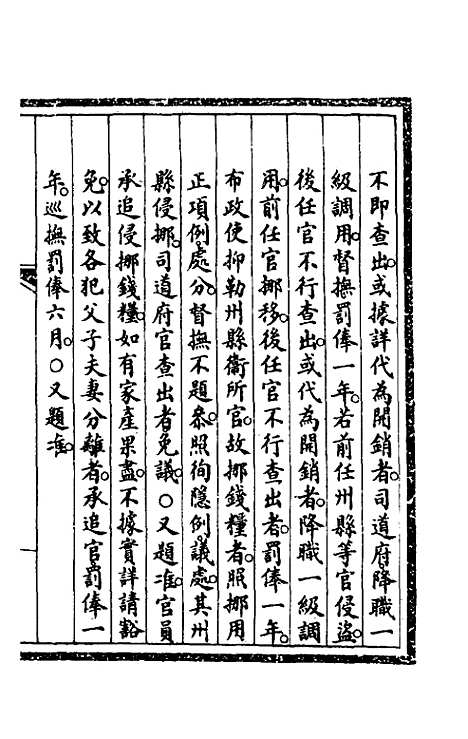 不即查出。或據詳代為開銷者。司道府降職一
級調用。督撫罰俸一年。若前任州縣等官侵盜。
後任官不行查出。或代為開銷者。降職一級調
用。前任官挪移。後任官不行查出者。罰俸一年。
布政使抑勒州縣衛所官。故挪錢糧者。照挪用
正項例。處分。督撫不題叅。照徇隱例。議處。其州
縣侵挪。司道府官查出者免議。○又題准。官員
承追侵挪錢糧。如有家產果盡。不據實詳請豁
免。以致各犯父子夫妻分離者。承追官罰俸一
年。巡撫罰俸六月。○又題准。